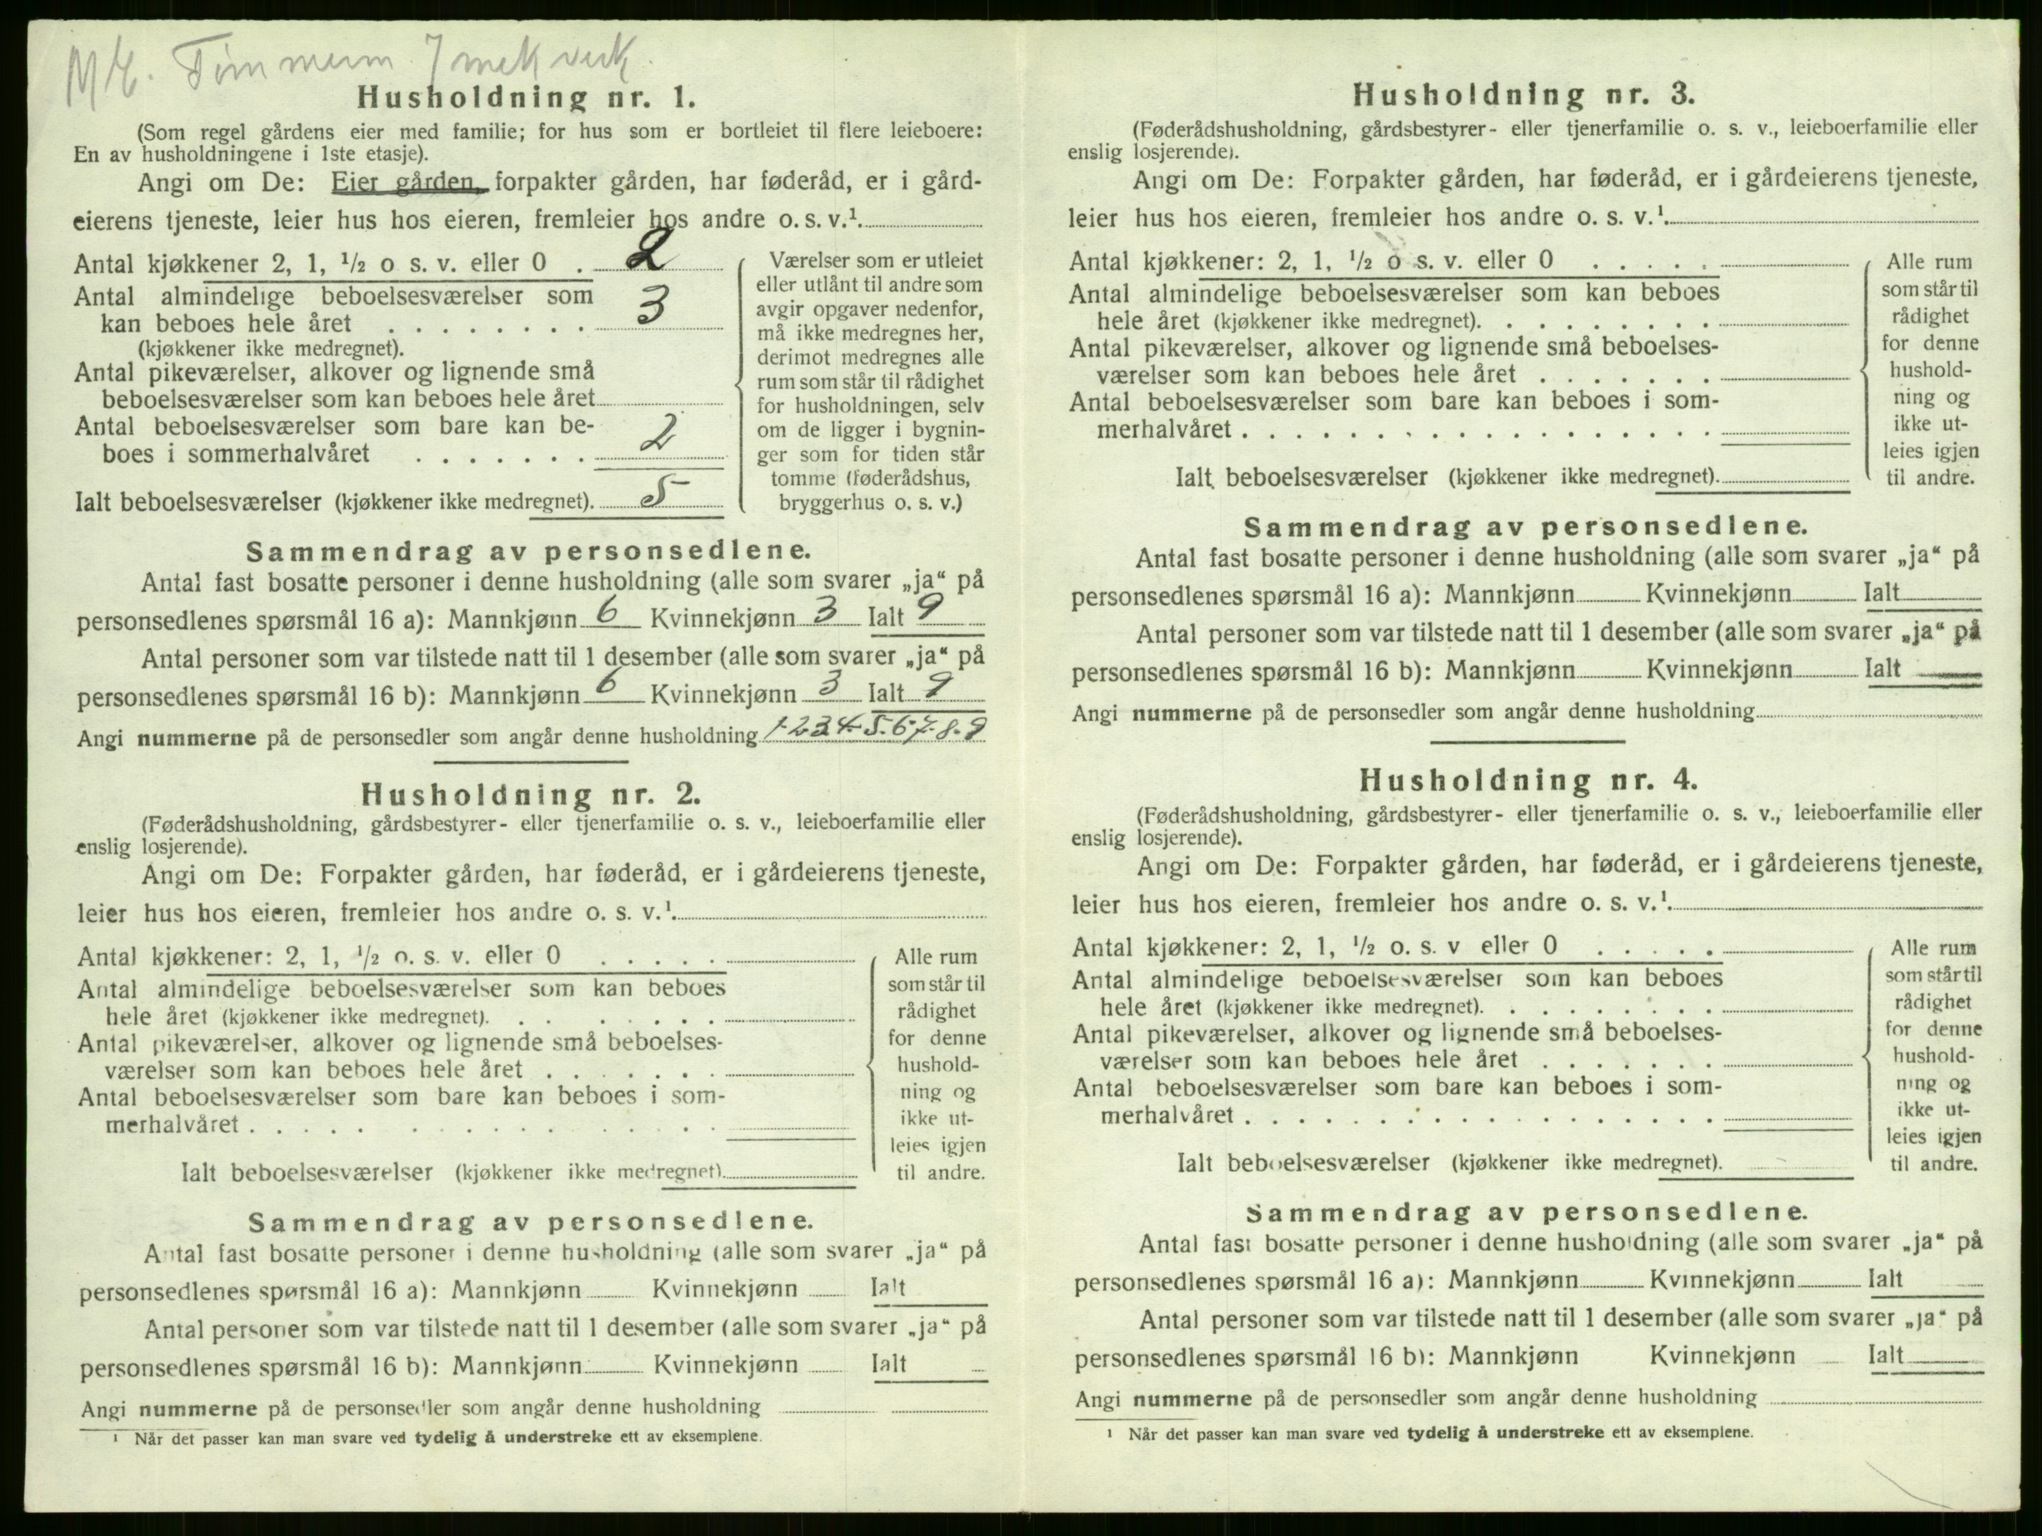 Husholdning nr. 1.
(Som regel gårdens eier med familie; for hus som er bortleiet til flere leieboere:
En av husholdningene i 1ste etasje).
Angi om De: Eier gården, forpakter gården, har føderåd, er i gård-
eierens tjeneste, leier hus hos eieren, fremleier hos andre o. s. v.¹.
Antal kjøkkener 2, 1, ½ o s. v. eller 0 . 2
Antal almindelige beboelsesværelser som
kan beboes hele året . . . . . . . . 3
(kjøkkener ikke medregnet).
Antal pikeværelser, alkover og lignende små
beboelsesværelser som kan beboes hele året
Antal beboelsesværelser som bare kan be-
boes i sommerhalvåret . . . . . . . 2
Ialt beboelsesværelser (kjøkkener ikke medregnet). 5
Værelser som er utleiet
eller utlånt til andre som
avgir opgaver nedenfor,
må ikke medregnes her,
derimot medregnes alle
rum som står til rådighet
for husholdningen, selv
om de ligger i bygnin-
ger som for tiden står
tomme (føderådshus,
bryggerhus o. s. v.)
Sammendrag av personsedlene.
Antal fast bosatte personer i denne husholdning (alle som svarer „ja“ på
personsedlenes spørsmål 16 a): Mannkjønn 6 Kvinnekjønn 3 Ialt 9
Antal personer som var tilstede natt til 1 desember (alle som svarer „ja“ på
personsedlenes spørsmål 16 b): Mannkjønn 6 Kvinnekjønn 3 Ialt 9
Angi nummerne på de personsedler som angår denne husholdning 1-2-3-4-5-6-7-8-9
Husholdning nr. 2.
(Føderådshusholdning, gårdsbestyrer- eller tjenerfamilie o. s. v., leieboerfamilie eller
enslig losjerende).
Angi om De: Forpakter gården, har føderåd, er i gårdeierens tjeneste,
leier hus hos eieren, fremleier hos andre o. s. v.¹.
Antal kjøkkener: 2, 1, ½ o. s. v. eller 0 . . . . .
Antal almindelige beboelsesværelser som kan beboes
hele året (kjøkkener ikke medregnet). . . . . . . .
Antal pikeværelser, alkover og lignende små beboelses-
værelser som kan beboes hele året . . . . . . .
Antal beboelsesværelser som bare kan beboes i som-
merhalvåret . . . . . . . . . . . . . . . . . .
Ialt beboelsesværelser (kjøkkener ikke medregnet).
Alle rum
som står til
rådighet
for denne
hushold-
ning og
ikke ut-
leies igjen
til andre.
Sammendrag av personsedlene.
Antal fast bosatte personer i denne husholdning (alle som svarer „ja“ på
personsedlenes spørsmål 16 a): Mannkjønn Kvinnekjønn Ialt
Antal personer som var tilstede natt til 1 desember (alle som svarer „ja“ på
personsedlenes spørsmål 16 b): Mannkjønn Kvinnekjønn Ialt
Angi nummerne på de personsedler som angår denne husholdning
¹ Når det passer kan man svare ved tydelig å understreke ett av eksemplene.
Husholdning nr. 3.
(Føderådshusholdning, gårdsbestyrer- eller tjenerfamilie o. s. v., leieboerfamilie eller
enslig losjerende).
Angi om De: Forpakter gården, har føderåd, er i gårdeierens tjeneste,
leier hus hos eieren, fremleier hos andre o. s. v.¹.
Antal kjøkkener: 2, 1, ½ o s. v. eller 0 . . . . .
Antal almindelige beboelsesværelser som kan beboes
hele året (kjøkkener ikke medregnet). . . . . . . .
Antal pikeværelser, alkover og lignende små beboelses-
værelser som kan beboes hele året . . . . . . .
Antal beboelsesværelser som bare kan beboes i som-
merhalvåret . . . . . . . . . . . . . . . . . .
Ialt beboelsesværelser (kjøkkener ikke medregnet).
Alle rum
som står til
rådighet
for denne
hushold-
ning og
ikke ut-
leies igjen
til andre.
Sammendrag av personsedlene.
Antal fast bosatte personer i denne husholdning (alle som svarer „ja“ på
personsedlenes spørsmål 16 a): Mannkjønn Kvinnekjønn Ialt
Antal personer som var tilstede natt til 1 desember (alle som svarer „ja“ på
personsedlenes spørsmål 16 b): Mannkjønn Kvinnekjønn Ialt
Angi nummerne på de personsedler som angår denne husholdning
Husholdning nr. 4.
(Føderådshusholdning, gårdsbestyrer- eller tjenerfamilie o. s. v., leieboerfamilie eller
enslig losjerende).
Angi om De: Forpakter gården, har føderåd, er i gårdeierens tjeneste,
leier hus hos eieren, fremleier hos andre o. s. v.¹.
Antal kjøkkener: 2, 1, ½ o. s. v eller 0 . . . . .
Antal almindelige beboelsesværelser som kan beboes
hele året (kjøkkener ikke medregnet). . . . . . . .
Antal pikeværelser, alkover og lignende små beboelses-
værelser som kan beboes hele året . . . . . . .
Antal beboelsesværelser som bare kan beboes i som-
merhalvåret . . . . . . . . . . . . . . . . . .
Ialt beboelsesværelser (kjøkkener ikke medregnet).
Alle rum
som står til
rådighet
for denne
hushold-
ning og
ikke ut-
leies igjen
til andre.
Sammendrag av personsedlene.
Antal fast bosatte personer i denne husholdning (alle som svarer „ja“ på
personsedlenes spørsmål 16 a): Mannkjønn Kvinnekjønn Ialt
Antal personer som var tilstede natt til 1 desember (alle som svarer „ja“ på
personsedlenes spørsmål 16 b): Mannkjønn Kvinnekjønn Ialt
Angi nummerne på de personsedler som angår denne husholdning
¹ Når det passer kan man svare ved tydelig å understreke ett av eksemplene.